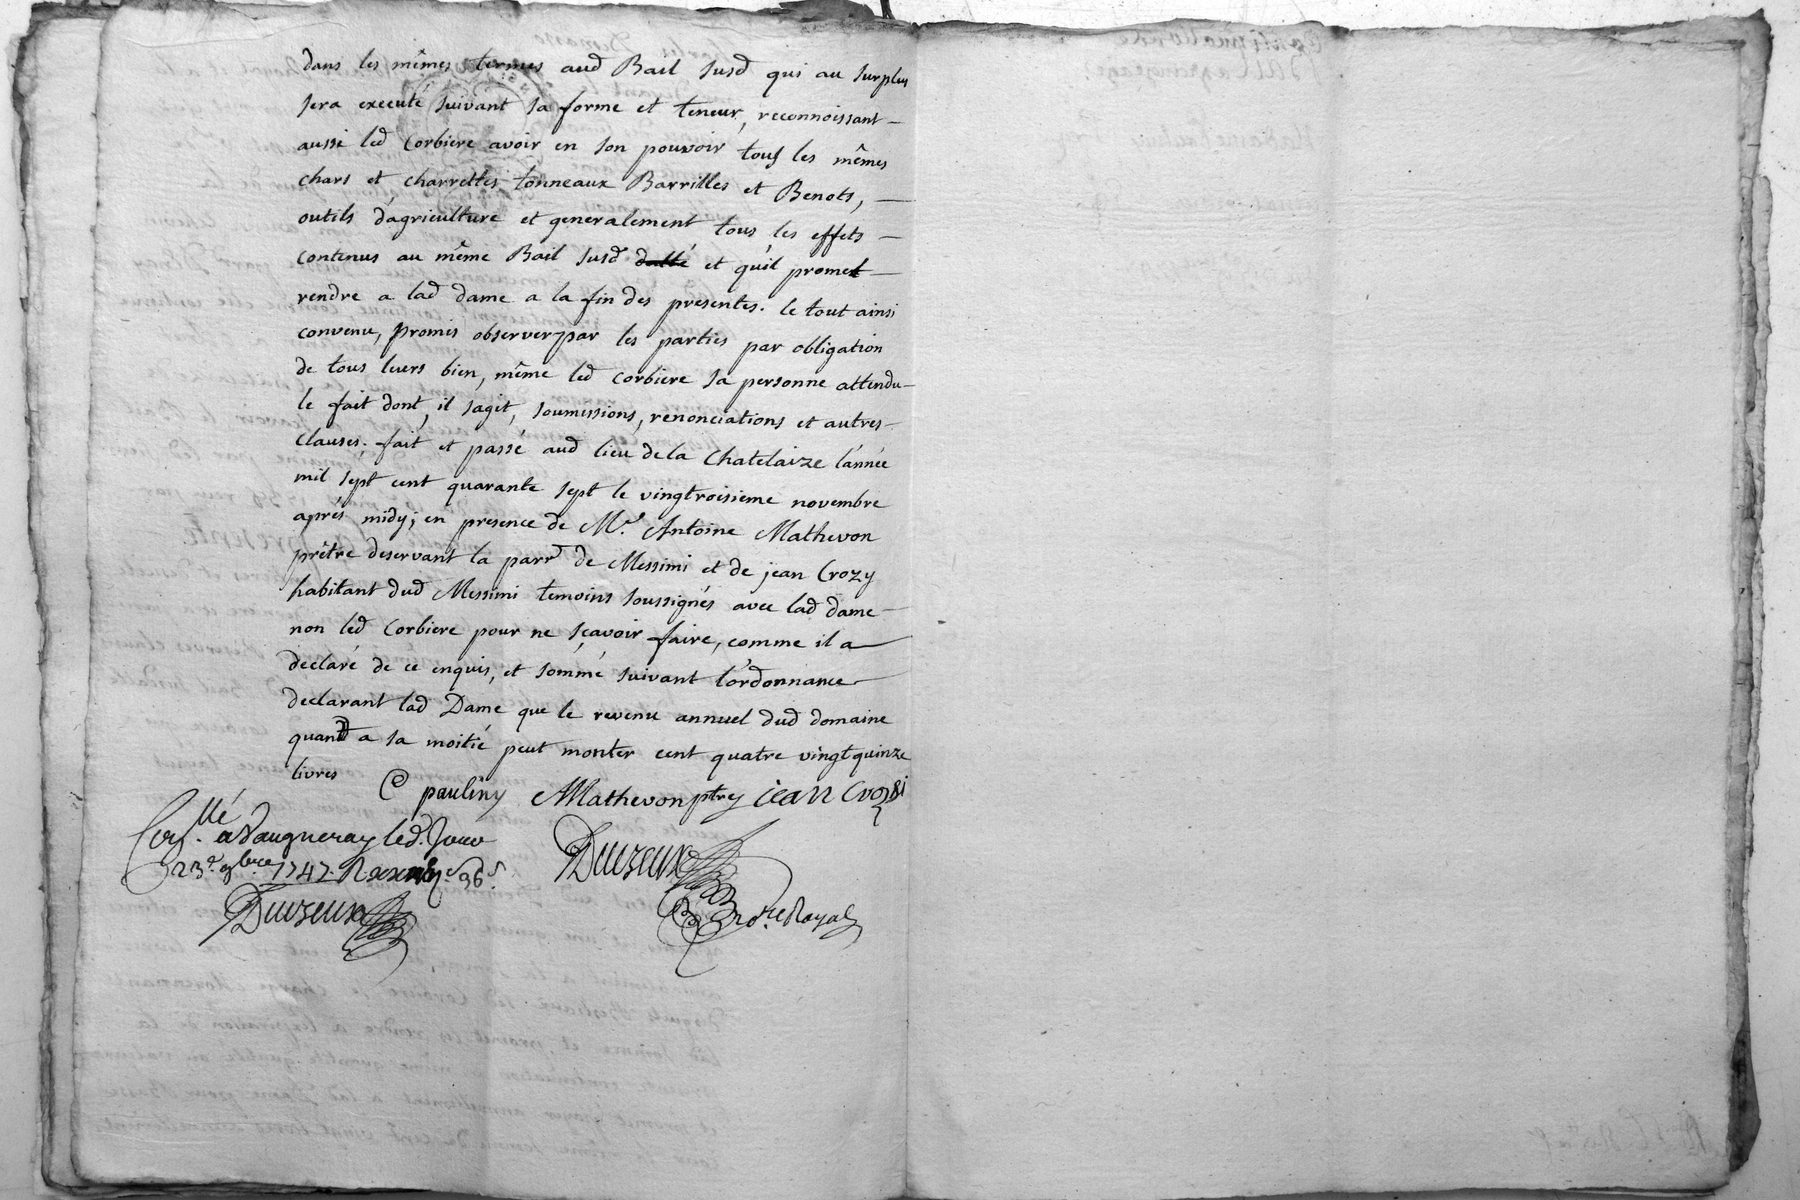 dans les mêmes termes aud Bail susd qui au surplus
sera executé suivant sa forme et teneur, reconnoissant
aussi led Corbiere avoir en son pouvoir tous les mêmes
chars et charrettes tonneaux Barrilles et Benots,
outils d'agriculture et generalement tous les effets
contenus au même Bail susd dallé et qu'il promet
rendre a lad dame a la fin des presentes. le tout ainsi
convenu, promis observer par les parties par obligation
de tous leurs bien, même led Corbiere sa personne attendu
le fait dont il sagit, soumissions, renonciations et autres
clauses. fait et passé aud lieu de la Chatelaize l'année
mil sept cent quarante sept le vingtroisieme novembre
aprés midy; en presence de Mr. Antoine Mathevon
prêtre deservant la parr de Messimi et de jean Crozy
habitant dud Messimi temoins soussignés avec lad dame
non led Corbiere pour ne sçavoir faire, comme il a
declaré de ce enquis, et sommé suivant l'ordonnance
declarant lad Dame que le revenu annuel dud domaine
quand a sa moitié peut monter cent quatre vingt quinze
livres
pauliny Mathevon ptre jean Crozi
Con.llé a Vaugneray led. Jour
23e. 9bre 1747.
Duvzeux
Duvzeux
no.re Royal